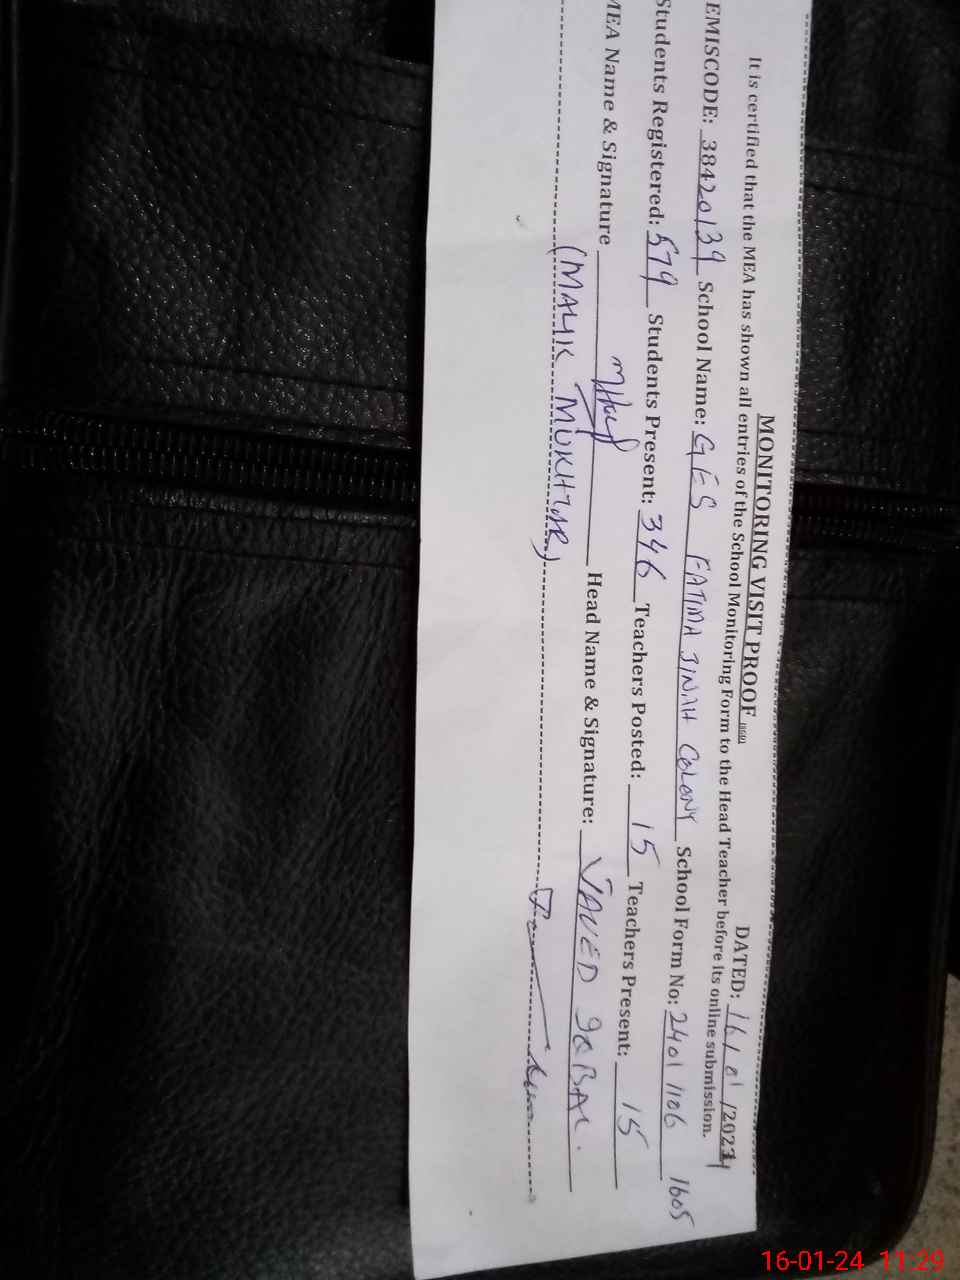 MONITORING VISIT PROOF
DATED: 16/01/2024
It is certified that the MEA has shown all entries of the School Monitoring Form to the Head Teacher before its online submission.
EMISCODE: 38420139 School Name: GES FATIMA JINAH COLONY School Form No: 24011106 1605
Students Registered: 579 Students Present: 346 Teachers Posted: 15 Teachers Present: 15
MEA Name & Signature Head Name & Signature: JAVED IQBAL.
(MALIK MUKHTAR)
16-01-24 11:29